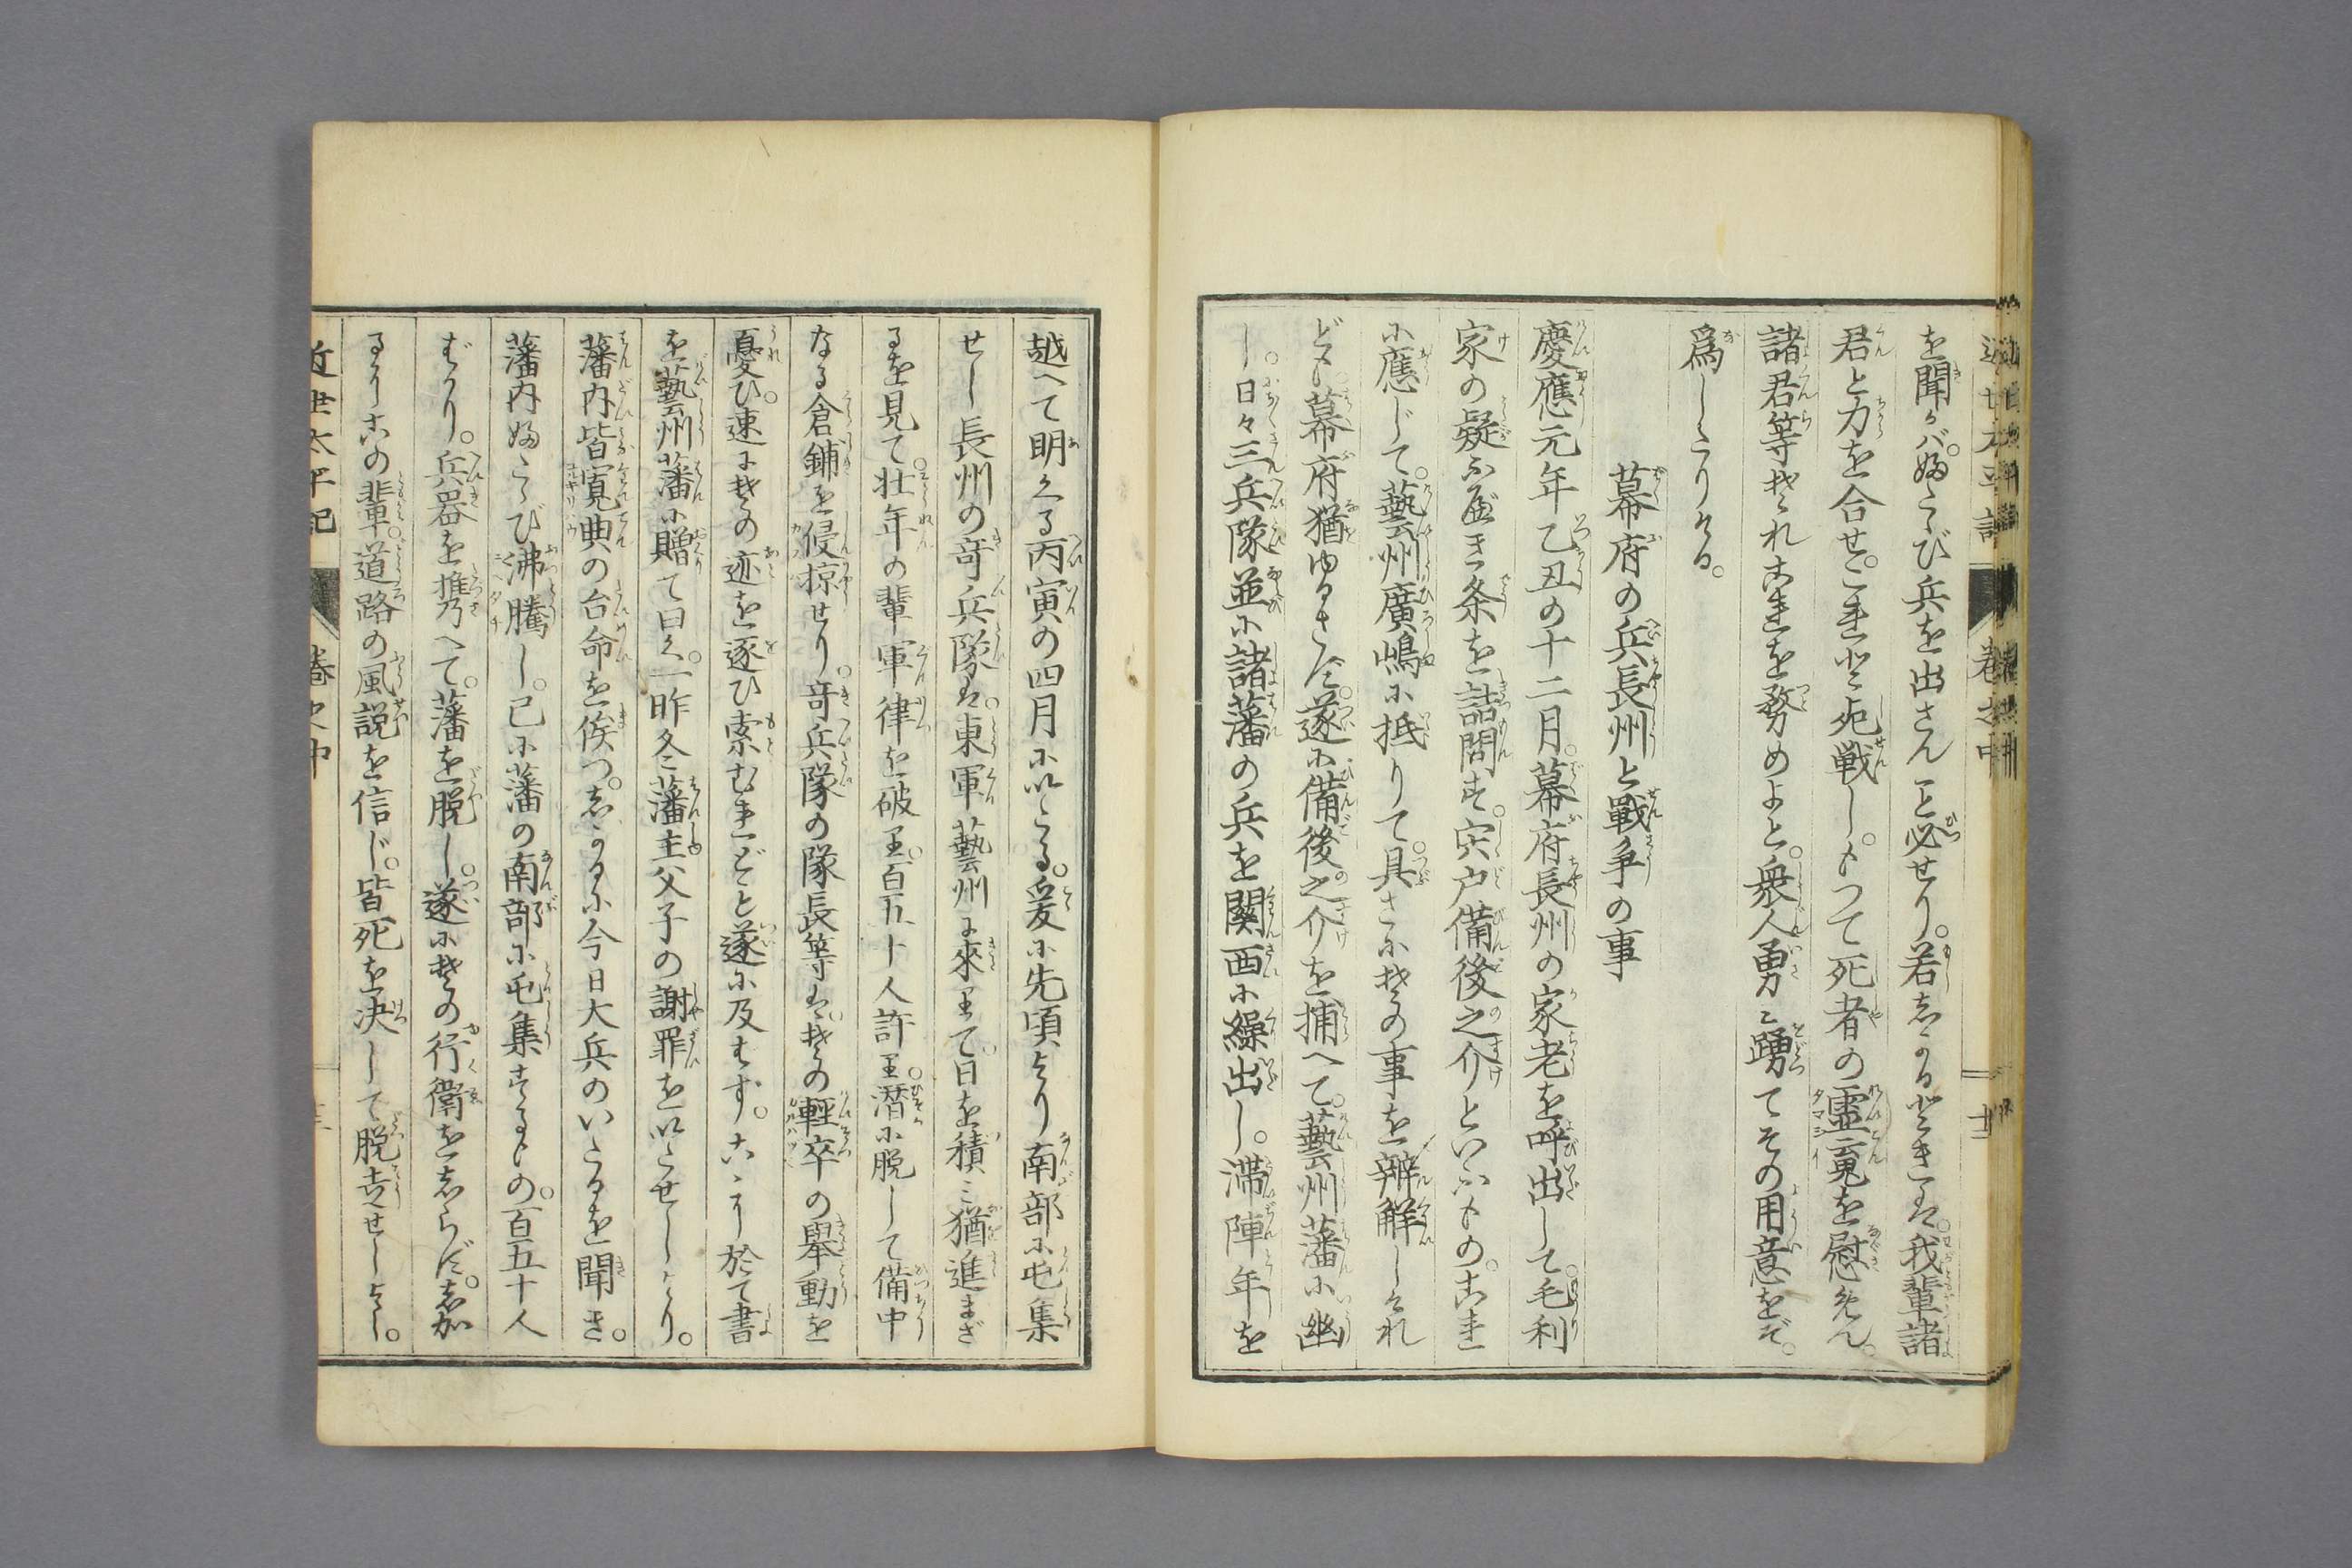 を聞かバ。婦たゝび兵を出さんこと必せり。若しかるときハ。我輩諸
君と力を合せ。これと死戦し。もつて死者の靈䰟を慰めん。
諸君等それこれを務めよと。衆人勇ミ踴てその用意をぞ。
為したりける。
幕府の兵長州と戰争の事
慶應元年乙丑の十二月。幕府長州の家老を呼出して。毛利
家の疑ふべき条を詰問す。宍户備後之介といふもの。これ
に應じて。藝州廣嶋に抵りて。具さにその事を辨解しけれ
ども。幕府猶ゆるさず。遂に備後之介を捕へて。藝州藩に幽
し。日々三兵隊並に諸藩の兵を関西に繰出し。滞陣年を
近世太平記
卷之中
十二
越へて明くる丙寅の四月にいたる。爰に先頃より南部に屯集
せし長州の竒兵隊ハ。東軍藝州に來りて。日を積ミ猶進まざ
るを見て。壮年の輩軍律を破り。百五十人許り。潜に脱して備中
なる倉鋪を侵掠せり。竒兵隊の隊長等ハ。その輕卒の舉動を
憂ひ。速にその迹を逐ひ索むれども遂に及ばず。こゝに於て書
を藝州藩に贈て曰く。一昨冬藩主父子の謝罪をいたせしより。
藩内皆寛典の台命を俟つ。しかるに今日大兵のいたるを聞き。
藩内婦たゝび沸騰し。已に藩の南部に屯集するもの。百五十人
ばかり。兵器を携へて。藩を脱し。遂にその行衞をしらず。しか
るにこの輩。道路の風説を信じ。皆死を決して脱去せしよし。
近世太平記
卷之中